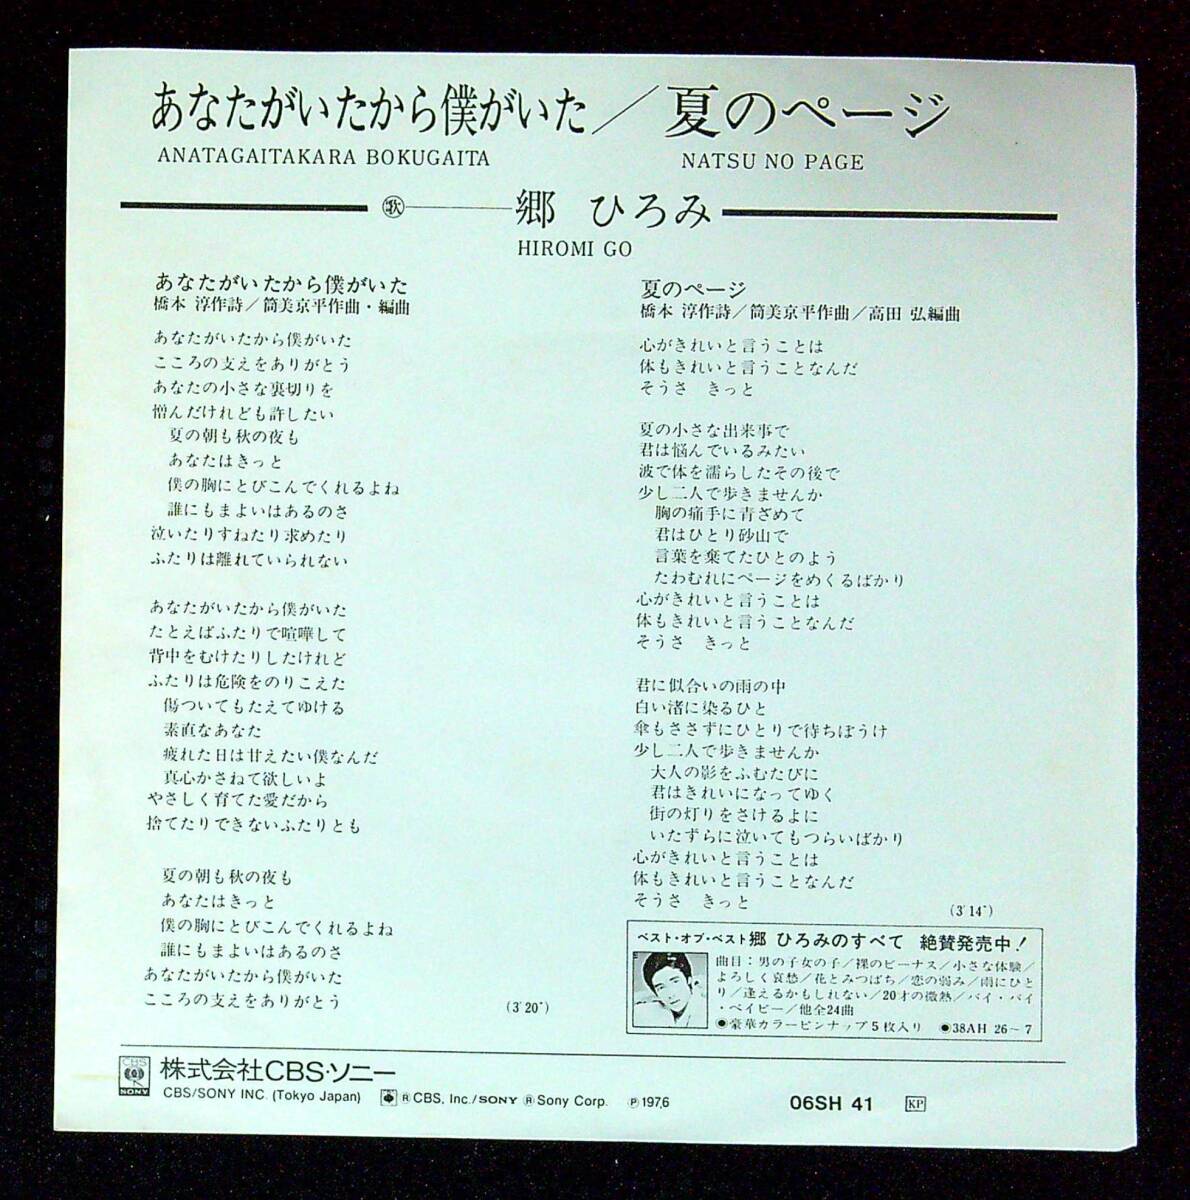 あなたがいたから僕がいた／夏のページ
ANATAGAITAKARA BOKUGAITA NATSU NO PAGE
歌 郷 ひろみ
HIROMI GO
あなたがいたから僕がいた
橋本 淳作詩／筒美京平作曲・編曲
あなたがいたから僕がいた
こころの支えをありがとう
あなたの小さな裏切りを
憎んだけれども許したい
夏の朝も秋の夜も
あなたはきっと
僕の胸にとびこんでくれるよね
誰にもまよいはあるのさ
泣いたりすねたり求めたり
ふたりは離れていられない
あなたがいたから僕がいた
たとえばふたりで喧嘩して
背中をむけたりしたけれど
ふたりは危険をのりこえた
傷ついてもたえてゆける
素直なあなた
疲れた日は甘えたい僕なんだ
真心かさねて欲しいよ
やさしく育てた愛だから
捨てたりできないふたりとも
夏の朝も秋の夜も
あなたはきっと
僕の胸にとびこんでくれるよね
誰にもまよいはあるのさ
あなたがいたから僕がいた
こころの支えをありがとう
(3'20")
夏のページ
橋本 淳作詩／筒美京平作曲／高田 弘編曲
心がきれいと言うことは
体もきれいと言うことなんだ
そうさ きっと
夏の小さな出来事で
君は悩んでいるみたい
波で体を濡らしたその後で
少し二人で歩きませんか
胸の痛手に青ざめて
君はひとり砂山で
言葉を棄てたひとのよう
たわむれにページをめくるばかり
心がきれいと言うことは
体もきれいと言うことなんだ
そうさ きっと
君に似合いの雨の中
白い渚に染るひと
傘もささずにひとりで待ちぼうけ
少し二人で歩きませんか
大人の影をふむたびに
君はきれいになってゆく
街の灯りをさけるよに
いたずらに泣いてもつらいばかり
心がきれいと言うことは
体もきれいと言うことなんだ
そうさ きっと
(3'14")
ベスト・オブ・ベスト郷 ひろみのすべて 絶賛発売中！
曲目：男の子女の子／裸のビーナス／小さな体験／
よろしく哀愁／花とみつばち／恋の弱み／雨にひと
り／逢えるかもしれない／20才の微熱／バイ・バイ
・ベイビー／他全24曲
●豪華カラーピンナップ5枚入り ●38AH 26～7
CBS SONY 株式会社CBS・ソニー
CBS/SONY INC. (Tokyo Japan) ®CBS, Inc./SONY ®Sony Corp. Ⓟ1976 06SH 41 KP